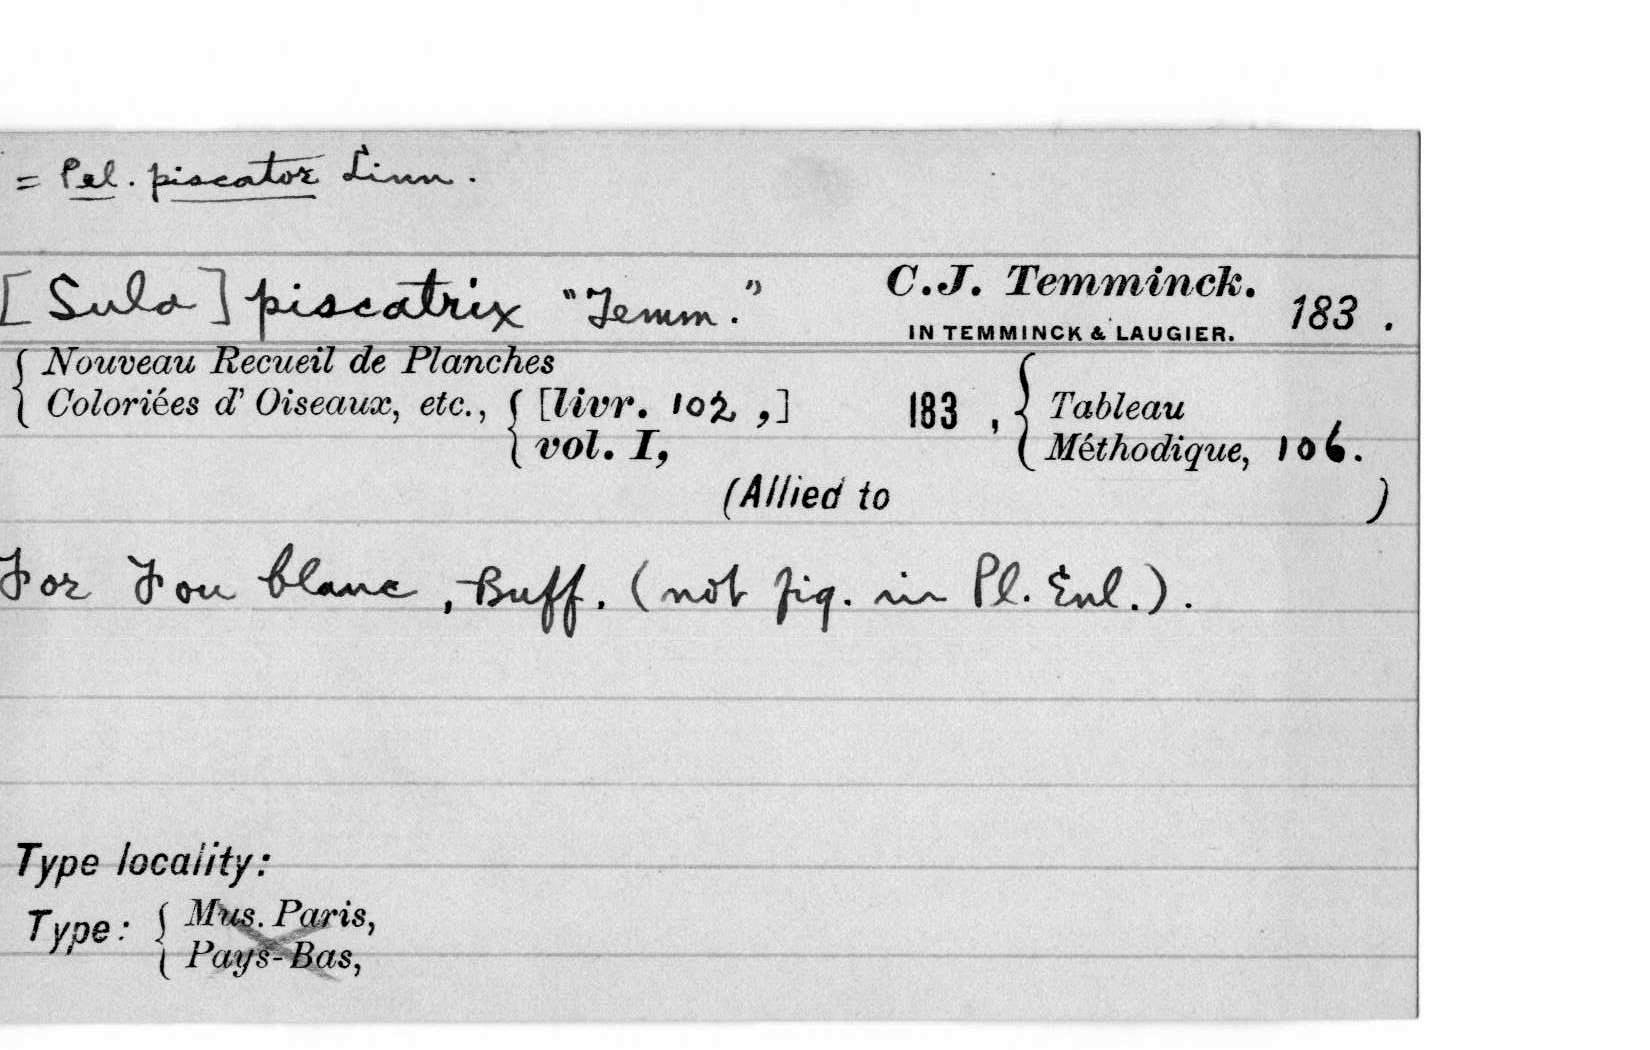 = Pel. piscator Linn.
[Sula] piscatrix "Temm." C.J. Temminck. 183.
IN TEMMINCK & LAUGIER.
Nouveau Recueil de Planches
Coloriées d' Oiseaux, etc., [livr. 102,] 183, Tableau
vol. I, Méthodique, 106.
(Allied to )
For Fou blanc, Buff. (not fig. in Pl. Enl.).
Type locality:
Type: Mus. Paris,
Pays-Bas,